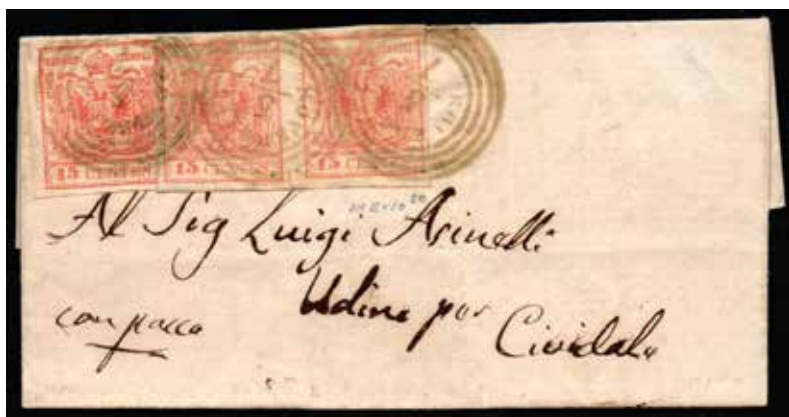 15 CENTES 15 CENTES 15 CENTES
Al Sig Luigi Asinelli
Udine per Cividale
con pacco